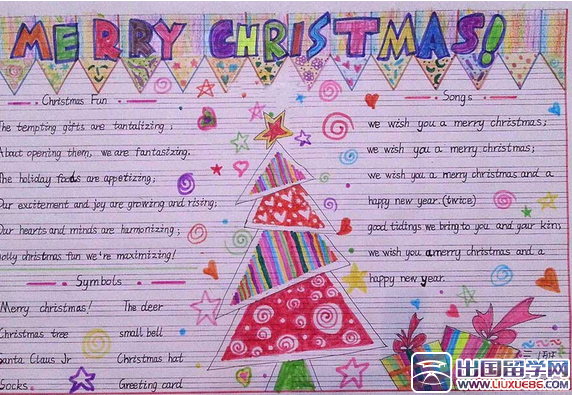 MERRY CHRISTMAS!
Christmas Fun
The tempting gifts are tantalizing;
About opening them, we are fantasizing.
The holiday foods are appetizing;
Our excitement and joy are growing and rising;
Our hearts and minds are harmonizing;
Jolly christmas fun we're maximizing!
Symbols
Merry christmas! The deer
Christmas tree small bell
Santa Claus Jr Christmas hat
Socks Greeting card
Songs
we wish you a merry christmas;
we wish you a merry christmas;
we wish you a merry christmas and a
happy new year. (twice)
good tidings we bring to you and your kin;
we wish you a merry christmas and a
happy new year.
出国留学网
www.LIUXUE86.COM